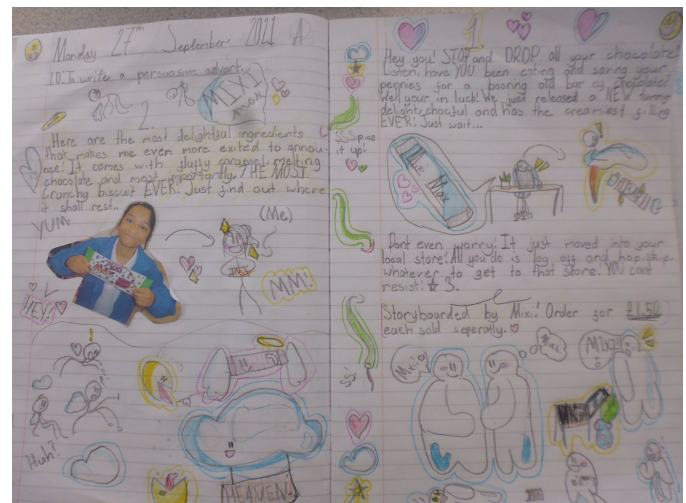 Monday 27th September 2021
LO. I write a persuasive advert.
MIXI
max
2.
Here are the most delightful ingredients
that makes me even more exited to annou-
nce! It comes with fluffy caramel, melting
chocolate and most importantly. THE MOST
Crunchy biscuit EVER. Just find out where
it shall rest..
YUM
(Me)
HEY!
MM!
Huh?
HEAVEN!
1
Hey you! STOP and DROP all your chocolate!
Listen: have YOU been eating and saving your
pennies for a booring old bar of chocolate?
Well your in luck! We just released a NEW
delight chocful and has the creamiest filling
EVER! Just wait...
SSSpice
it up!
Max
Dont even worry: It just moved into your
local store! All you do is log off and hop, skip
whatever to get to that store. YOU cant
resist! 3.
Storyboarded by Mixi! Order for £1.50
each sold seperatly.
SS!
Mixi!
Mixi!